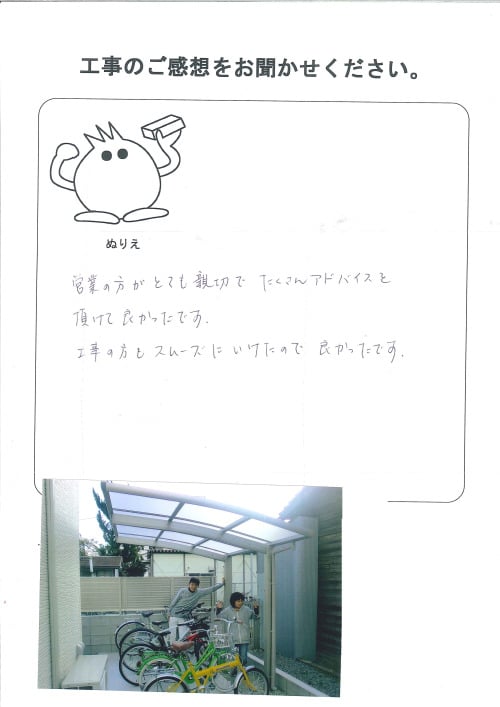 工事のご感想をお聞かせください。
ぬりえ
営業の方がとても親切で たくさんアドバイスを
頂けて良かったです.
工事の方もスムーズにいけたので 良かったです.